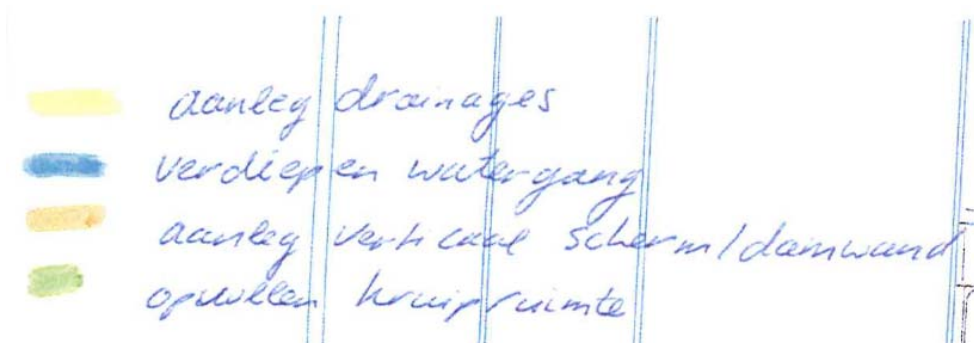 aanleg drainages
verdiepen watergang
aanleg verticaal scherm/damwand
opvullen kruipruimte